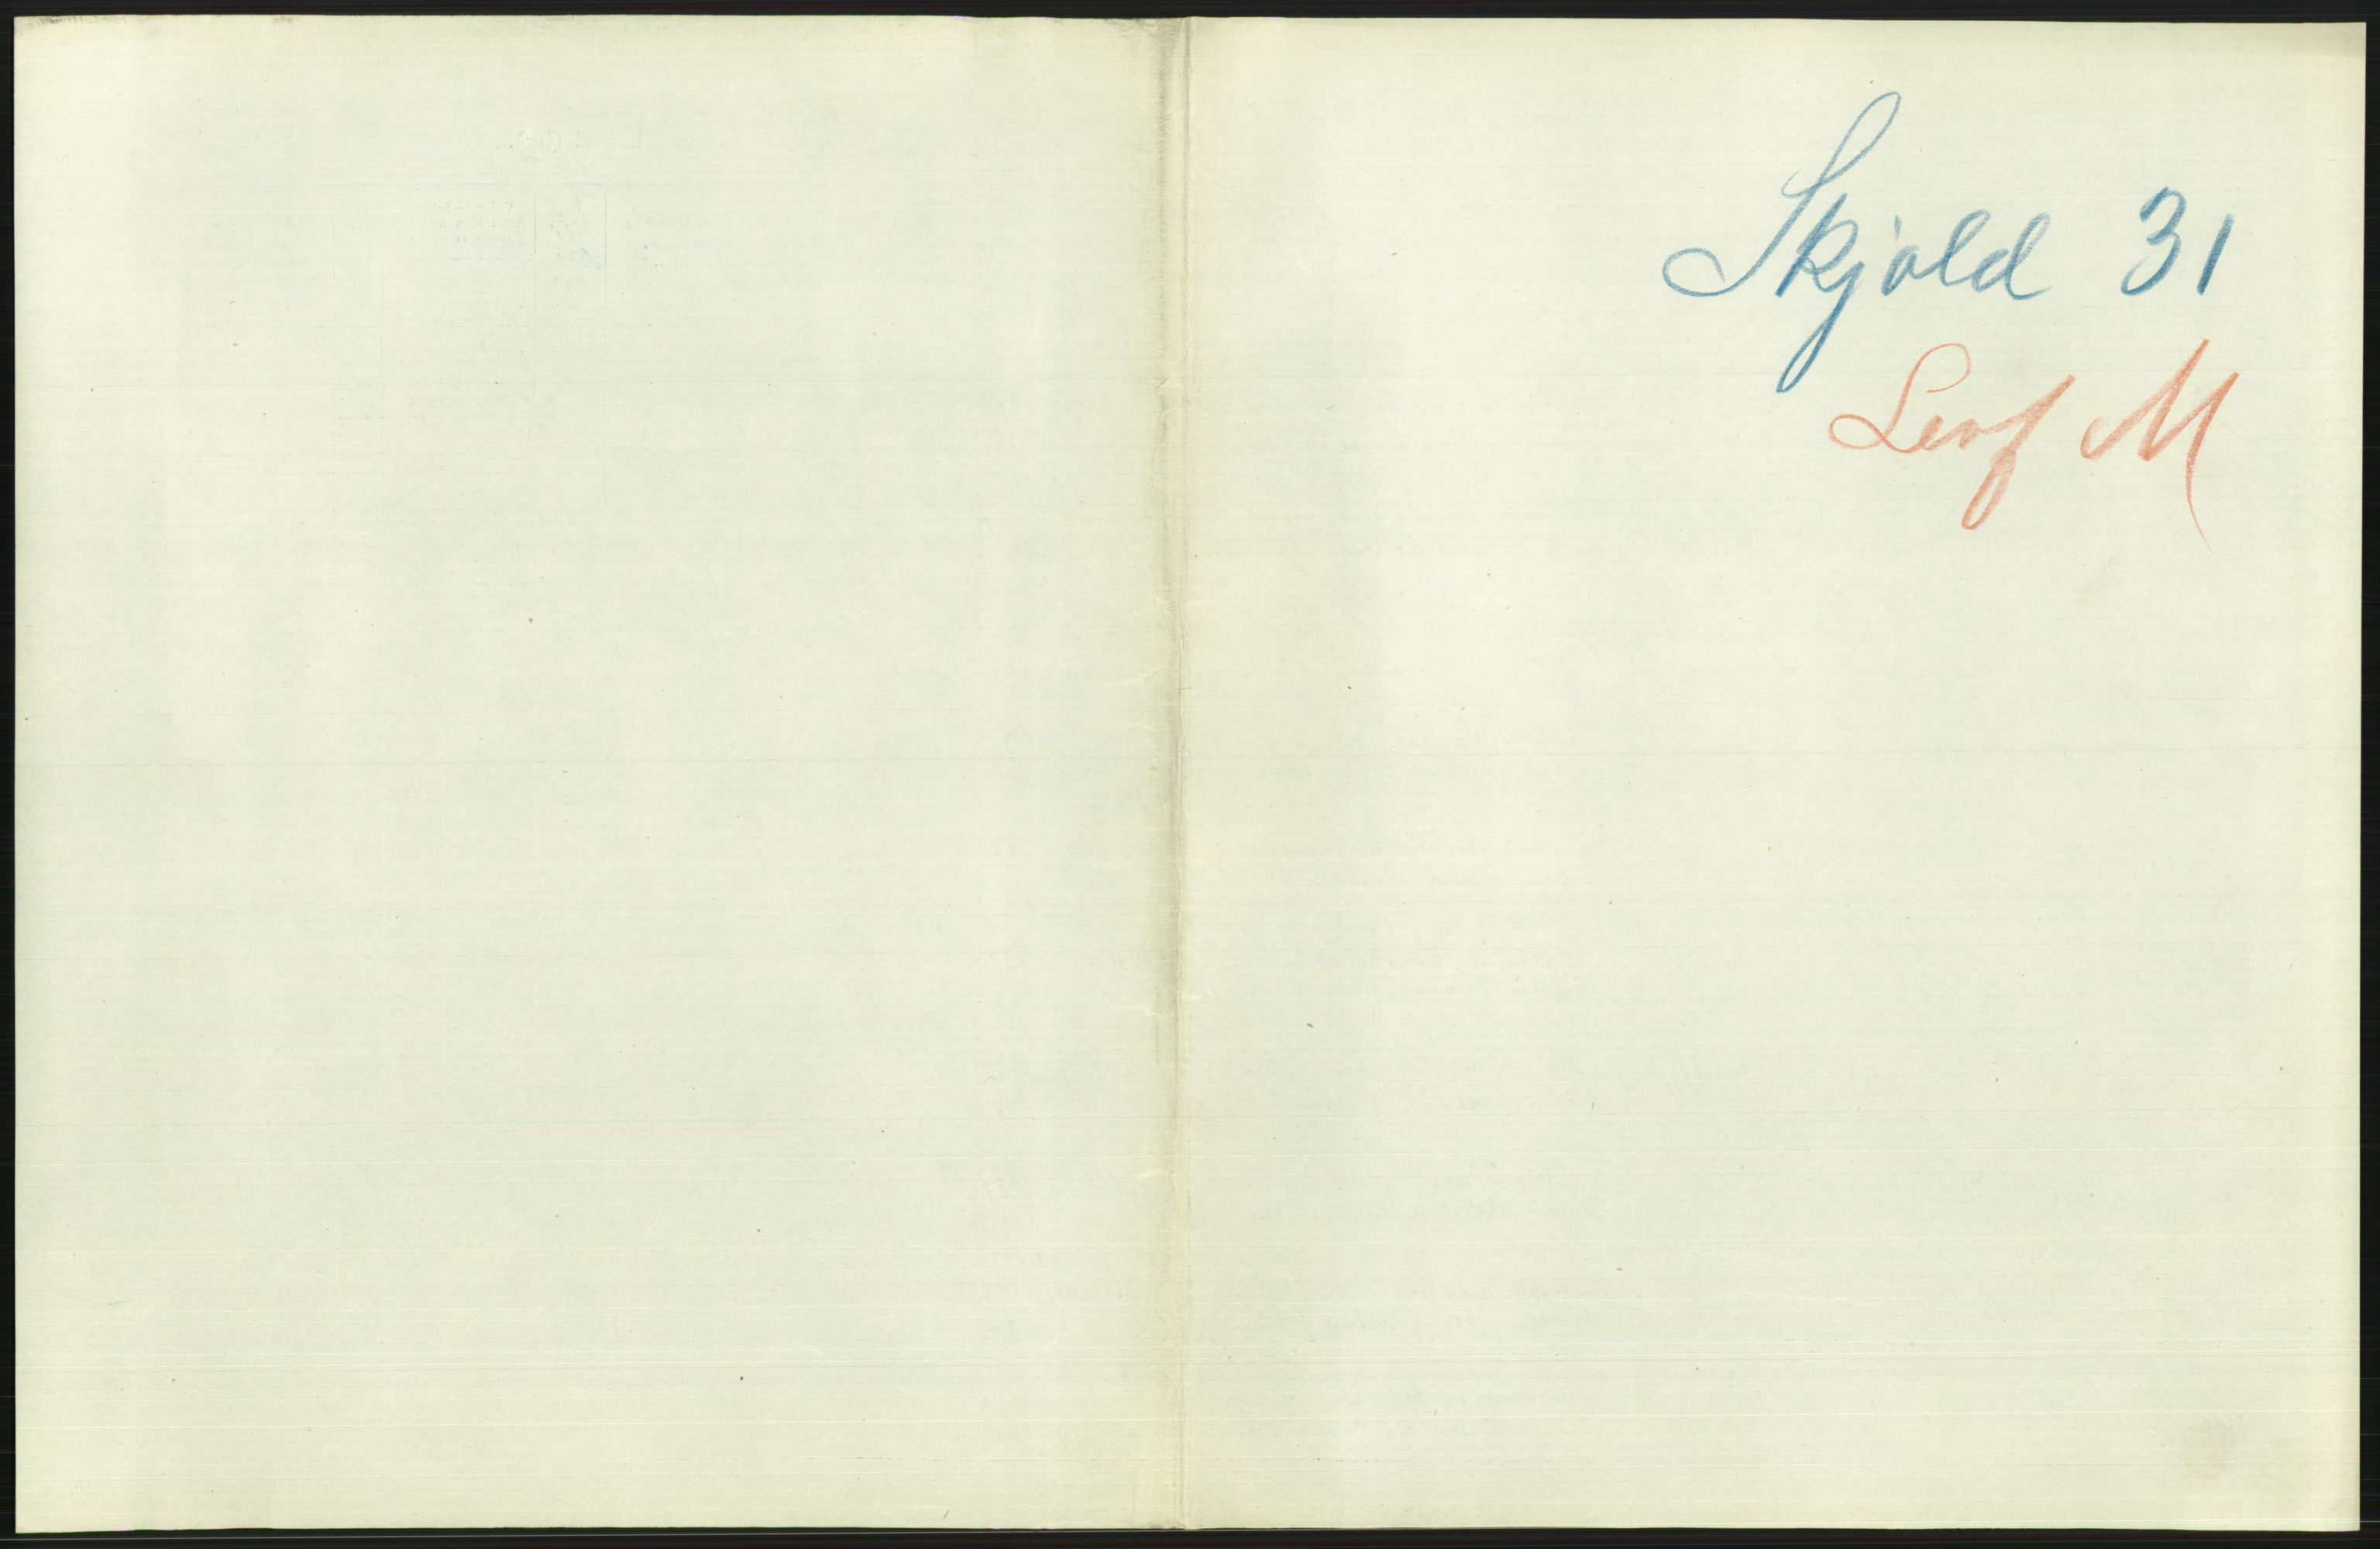 Skjold 31
Levf M